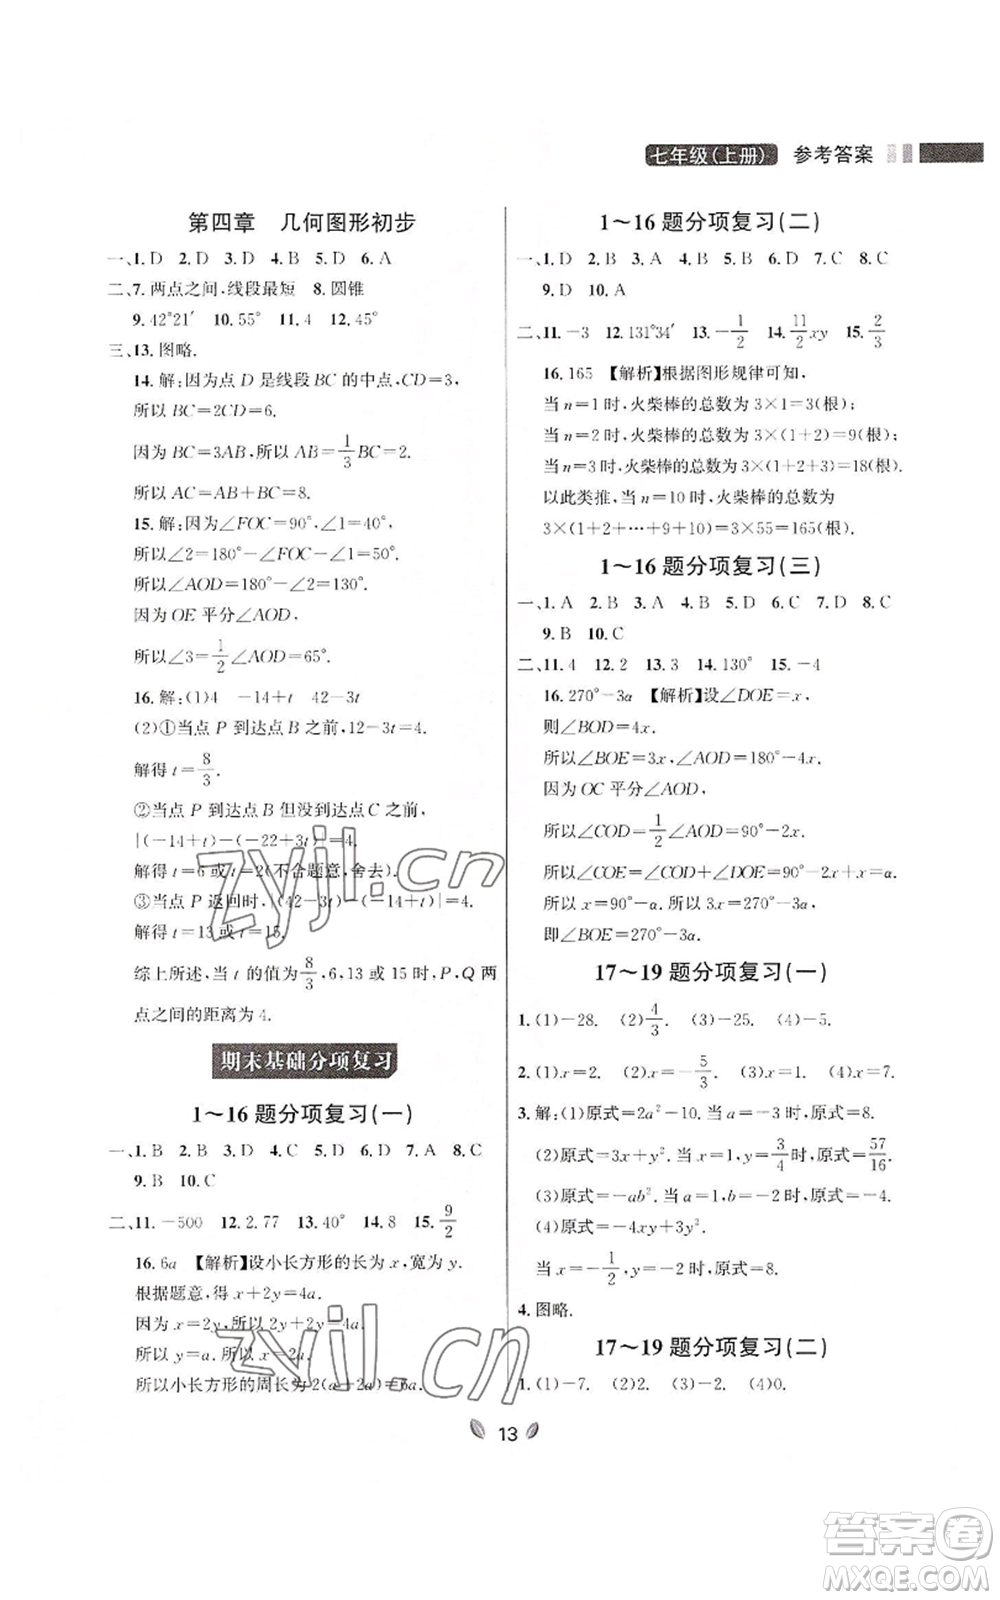 七年级(上册) 参考答案
第四章 几何图形初步
一、1.D 2.D 3.D 4.B 5.D 6.A
二、7.两点之间,线段最短 8.圆锥
9.42°21′ 10.55° 11.4 12.45°
三、13.图略.
14.解:因为点 D 是线段 BC 的中点,CD=3,
所以 BC=2CD=6.
因为 BC=3AB,所以 AB=1/3BC=2.
所以 AC=AB+BC=8.
15.解:因为∠FOC=90°,∠1=40°,
所以∠2=180°-∠FOC-∠1=50°.
所以∠AOD=180°-∠2=130°.
因为 OE 平分∠AOD,
所以∠3=1/2∠AOD=65°.
16.解:(1)4 -14+t 42-3t
(2)①当点 P 到达点 B 之前,12-3t=4.
解得 t=8/3.
②当点 P 到达点 B 但没到达点 C 之前,
|(-14+t)-(-22+3t)|=4.
解得 t=6 或 t=2(不合题意,舍去).
③当点 P 返回时,|(42-3t)-(-14+t)|=4.
解得 t=13 或 t=15.
综上所述,当 t 的值为8/3,6,13 或 15 时,P、Q 两
点之间的距离为 4.
期末基础分项复习
1～16 题分项复习(一)
一、1.B 2.B 3.D 4.C 5.D 6.D 7.A 8.C
9.B 10.C
二、11.-500 12.2.77 13.40° 14.8 15.9/2
16.6a 【解析】设小长方形的长为 x,宽为 y.
根据题意,得 x+2y=4a.
因为 x=2y,所以 2y+2y=4a.
所以 y=a.所以 x=2a.
所以小长方形的周长为 2(a+2a)=6a.
1～16 题分项复习(二)
一、1.D 2.B 3.A 4.C 5.B 6.D 7.C 8.C
9.D 10.A
二、11.-3 12.131°34′ 13.-1/2 14.11/2xy 15.2/3
16.165 【解析】根据图形规律可知,
当 n=1 时,火柴棒的总数为 3×1=3(根);
当 n=2 时,火柴棒的总数为 3×(1+2)=9(根);
当 n=3 时,火柴棒的总数为 3×(1+2+3)=18(根).
以此类推,当 n=10 时,火柴棒的总数为
3×(1+2+…+9+10)=3×55=165(根).
1～16 题分项复习(三)
一、1.A 2.B 3.A 4.B 5.D 6.C 7.D 8.C
9.B 10.C
二、11.4 12.2 13.3 14.130° 15.-4
16.270°-3α 【解析】设∠DOE=x,
则∠BOD=4x.
所以∠BOE=3x,∠AOD=180°-4x.
因为 OC 平分∠AOD,
所以∠COD=1/2∠AOD=90°-2x.
所以∠COE=∠COD+∠DOE=90°-x.
所以 x=90°-α.所以 3x=270°-3α.
即∠BOE=270°-3α.
17～19 题分项复习(一)
1.(1)-28. (2)4/3. (3)-25. (4)-5.
2.(1)x=2. (2)x=3. (3)x=-5/3. (4)x=9.
3.解:(1)原式=2a²-10.当 a=-3 时,原式=8.
(2)原式=3x+y².当 x=1,y=3/4时,原式=57/16.
(3)原式=-ab².当 a=1,b=-2 时,原式=-4.
(4)原式=-4xy+3y².
当 x=-1/2,y=-2 时,原式=8.
4.图略.
17～19 题分项复习(二)
1.(1)-7. (2)2. (3)-2. (4)0.
13
zyjl.cn
zyjl.cn
答案卷
MXQE.COM